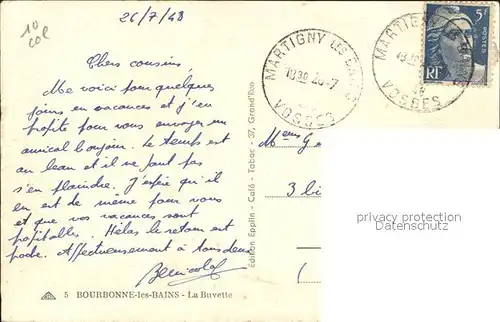 10
col
26/7/48
Chers cousins,
Me voici pour quelques
jours en vacances et j'en
profite pour vous envoyer un
amical bonjour. Le temps est
au beau et il ne faut pas
s'en plaindre. J'espère qu'il
en est de même pour vous
et que vos vacances sont
profitables. Hélas le retour est
proche. Affectueusement à tous deux
5 BOURBONNE-les-BAINS - La Buvette
Edition Epplin - Café - Tabac - 37, Grand'Rue
MARTIGNY LES BAINS
1930 26-7
VOSGES
MARTIGNY
VOSGES
5F
POSTES
RF
3
privacy protection
Datenschutz